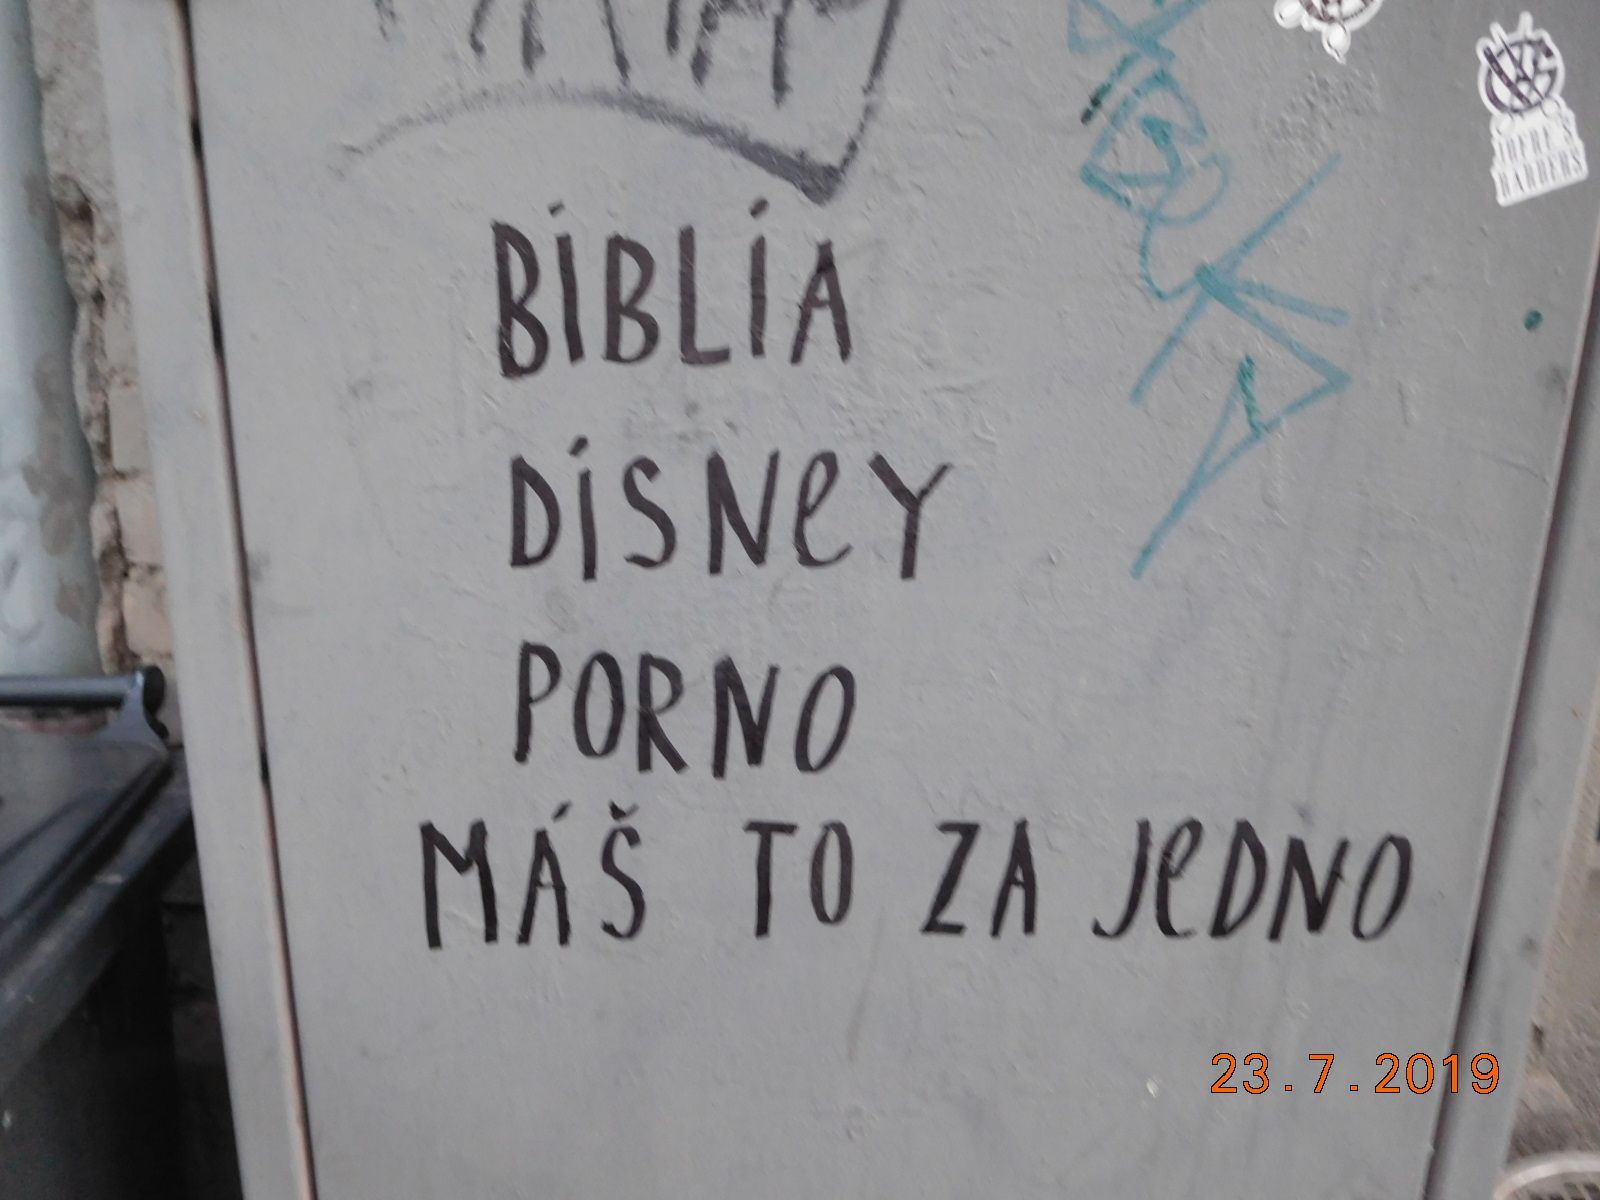 BIBLIA
DISNeY
PORNO
MÁŠ TO ZA JeDNO
THERE'S
BARBERS
23.7.2019